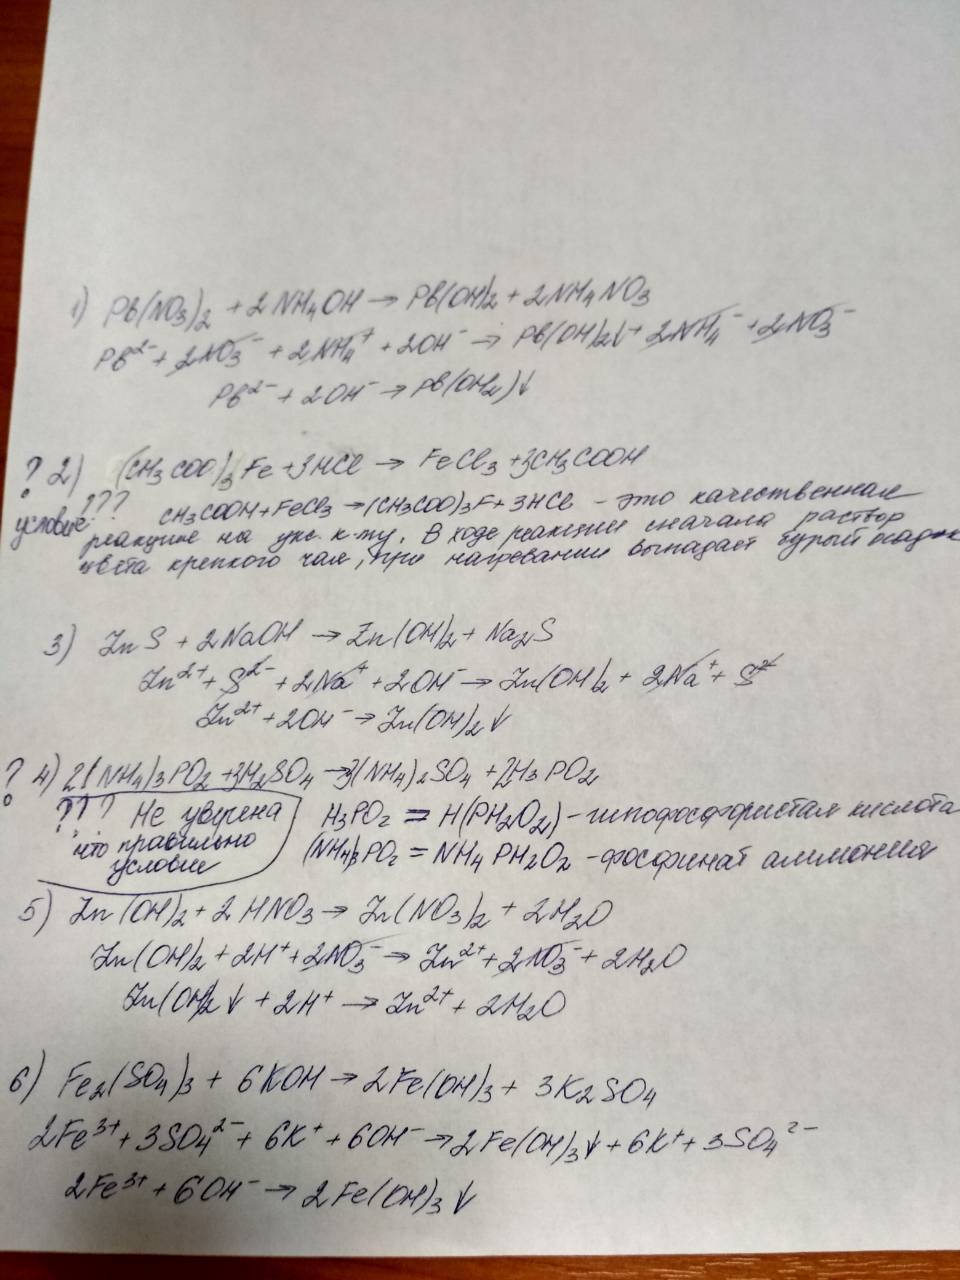 1) Pb(NO₃)₂ + 2NH₄OH → Pb(OH)₂ + 2NH₄NO₃
Pb²⁻ + 2NO₃⁻ + 2NH₄⁺ + 2OH⁻ → Pb(OH)₂↓ + 2NH₄⁻ + 2NO₃⁻
Pb²⁻ + 2OH⁻ → Pb(OH₂)↓
? 2) (CH₃COO)₃Fe + 3HCl → FeCl₃ + 3CH₃COOH
условие ??? CH₃COOH + FeCl₃ → (CH₃COO)₃F + 3HCl - это качественная
реакция на укс. к-ту. В ходе реакции сначала раствор
цвета крепкого чая, при нагревании выпадает бурый осадок
3) ZnS + 2NaOH → Zn(OH)₂ + Na₂S
Zn²⁺ + S²⁻ + 2Na⁺ + 2OH⁻ → Zn(OH)₂ + 2Na⁺ + S²⁻
Zn²⁺ + 2OH⁻ → Zn(OH)₂↓
? 4) 2(NH₄)₃PO₂ + 3H₂SO₄ → 3(NH₄)₂SO₄ + 2H₃PO₂
??? Не уверена
что правильно
условие
H₃PO₂ = H(PH₂O₂) - гипофосфористая кислота
(NH₄)₃PO₂ = NH₄PH₂O₂ - фосфинат аммония
5) Zn(OH)₂ + 2HNO₃ → Zn(NO₃)₂ + 2H₂O
Zn(OH)₂ + 2H⁺ + 2NO₃⁻ → Zn²⁺ + 2NO₃⁻ + 2H₂O
Zn(OH)₂↓ + 2H⁺ → Zn²⁺ + 2H₂O
6) Fe₂(SO₄)₃ + 6KOH → 2Fe(OH)₃ + 3K₂SO₄
2Fe³⁺ + 3SO₄²⁻ + 6K⁺ + 6OH⁻ → 2Fe(OH)₃↓ + 6K⁺ + 3SO₄²⁻
2Fe³⁺ + 6OH⁻ → 2Fe(OH)₃↓